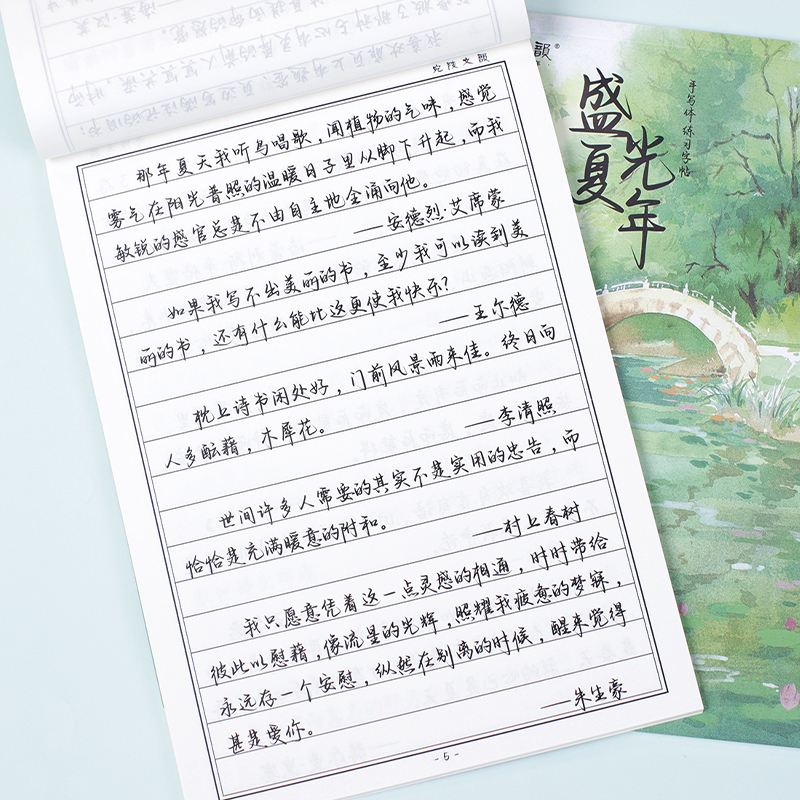 那年夏天我听鸟唱歌，闻植物的气味，感觉
雾气在阳光普照的温暖日子里从脚下升起，而我
敏锐的感官总是不由自主地全涌向他。
——安德烈·艾席蒙
如果我写不出美丽的书，至少我可以读到美
丽的书，还有什么能比这更使我快乐？
——王尔德
枕上诗书闲处好，门前风景雨来佳。终日向
人多酝藉，木犀花。
——李清照
世间许多人需要的其实不是实用的忠告，而
恰恰是充满暖意的附和。
——村上春树
我只愿意凭着这一点灵感的相通，时时带给
彼此以慰藉，像流星的光辉，照耀我疲惫的梦寐，
永远存一个安慰，纵然在别离的时候，醒来觉得
甚是爱你。
——朱生豪
- 5 -
盛夏
光年
手写体练习字帖